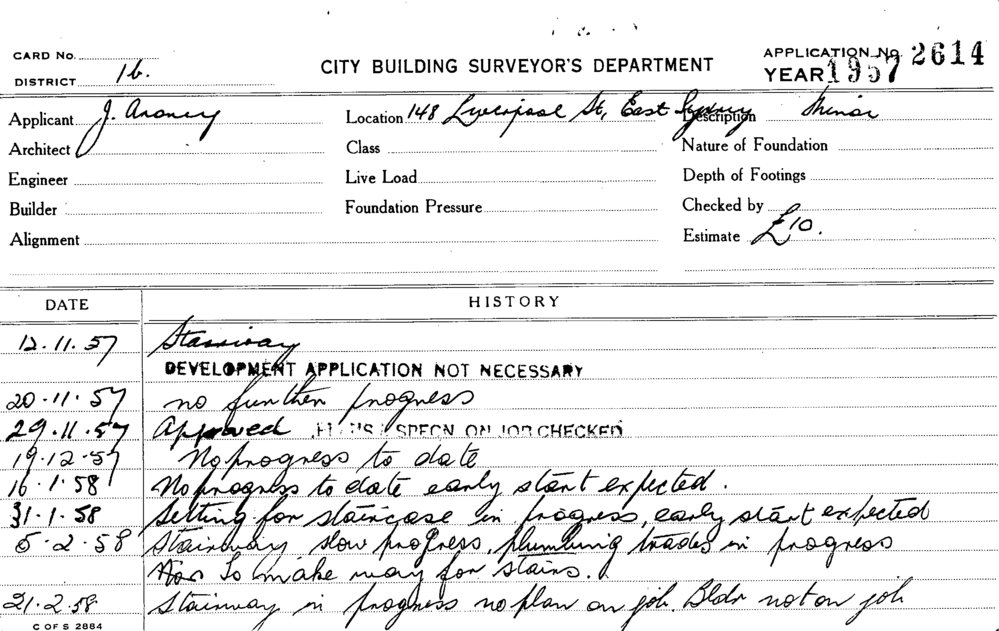 CARD No.
DISTRICT 16.
CITY BUILDING SURVEYOR'S DEPARTMENT
APPLICATION No. 2614
YEAR 1957
Applicant J. Aroney
Location 148 Liverpool St, East Sydney
Description Minor
Architect
Class
Nature of Foundation
Engineer
Live Load
Depth of Footings
Builder
Foundation Pressure
Checked by
Alignment
Estimate £10.
DATE
HISTORY
12.11.57 Stairway
DEVELOPMENT APPLICATION NOT NECESSARY
20.11.57 no further progress
29.11.57 Approved PLANS SPECN ON JOB CHECKED
19.12.57 No progress to date
16.1.58 No progress to date early start expected.
31.1.58 Setting for staircase in progress, early start expected
5.2.58 Stairway slow progress, plumbing trades in progress
to make way for stairs.
21.2.58 Stairway in progress no plan on job. Bldr not on job
C OF S 2884